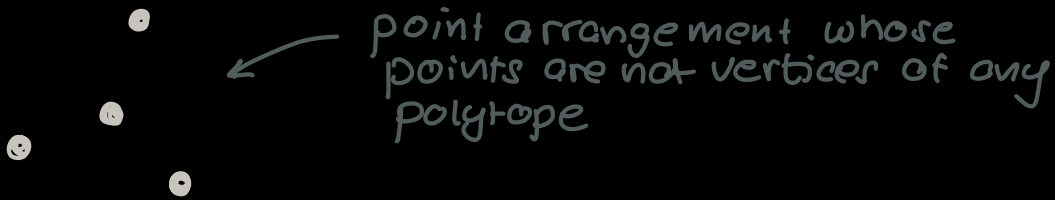 point arrangement whose
points are not vertices of any
polytope